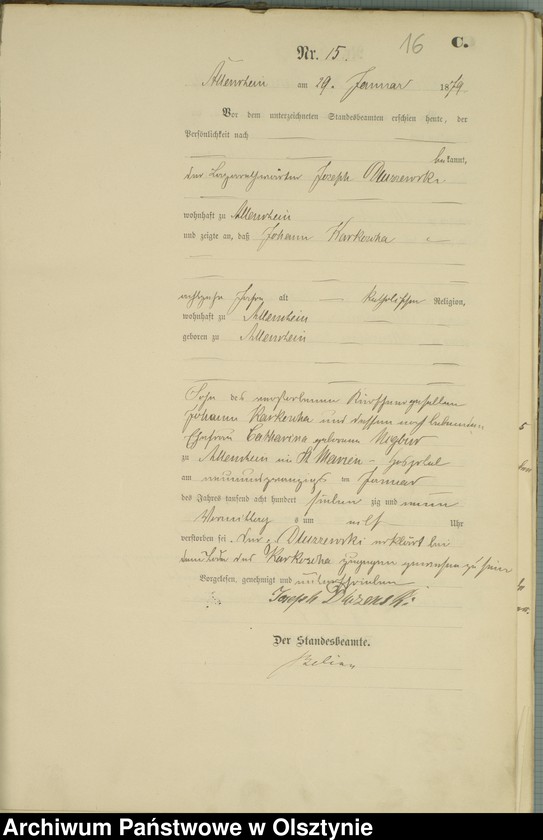 16 C.
Nr. 15.
Allenstein am 29. Januar 1879
Vor dem unterzeichneten Standesbeamten erschien heute, der
Persönlichkeit nach
bekannt,
der Lazarethwärter Joseph
wohnhaft zu Allenstein
und zeigte an, daß Johann Karkoscha
achtzehn Jahre alt katholischer Religion,
wohnhaft zu Allenstein
geboren zu Allenstein
Sohn des verstorbenen Kürschnergesellen
Johann Karkoscha und dessen noch lebenden
Ehefrau Catharina geborene
zu Allenstein im St Marien-Hospital
am neunundzwanzigsten Januar
des Jahres tausend acht hundert sieben zig und neun
Vormittags um elf Uhr
verstorben sei. Der erklärt bei
dem Tode des Karkoscha zugegen gewesen zu sein
Vorgelesen, genehmigt und unterschrieben
Joseph
Der Standesbeamte.
Archiwum Państwowe w Olsztynie